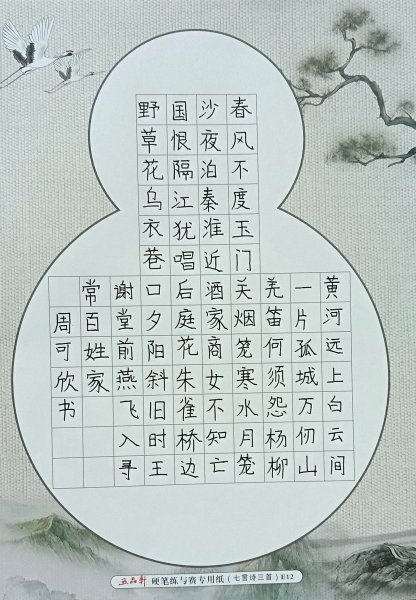 黄河远上白云间
一片孤城万仞山
羌笛何须怨杨柳
春风不度玉门关烟笼寒水月笼
沙夜泊秦淮近酒家商女不知亡
国恨隔江犹唱后庭花朱雀桥边
野草花乌衣巷口夕阳斜旧时王
谢堂前燕飞入寻
常百姓家
周可欣书
五品轩 硬笔练与赛专用纸（七言诗三首）E12